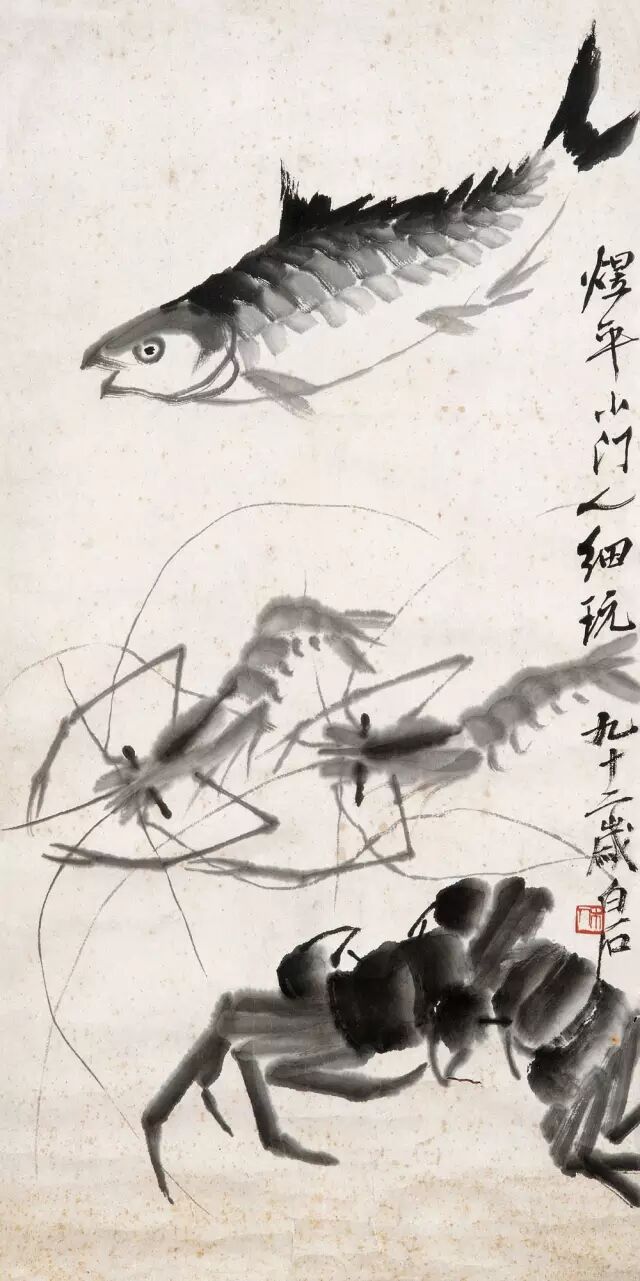 煜平小门人细玩九十二岁白石